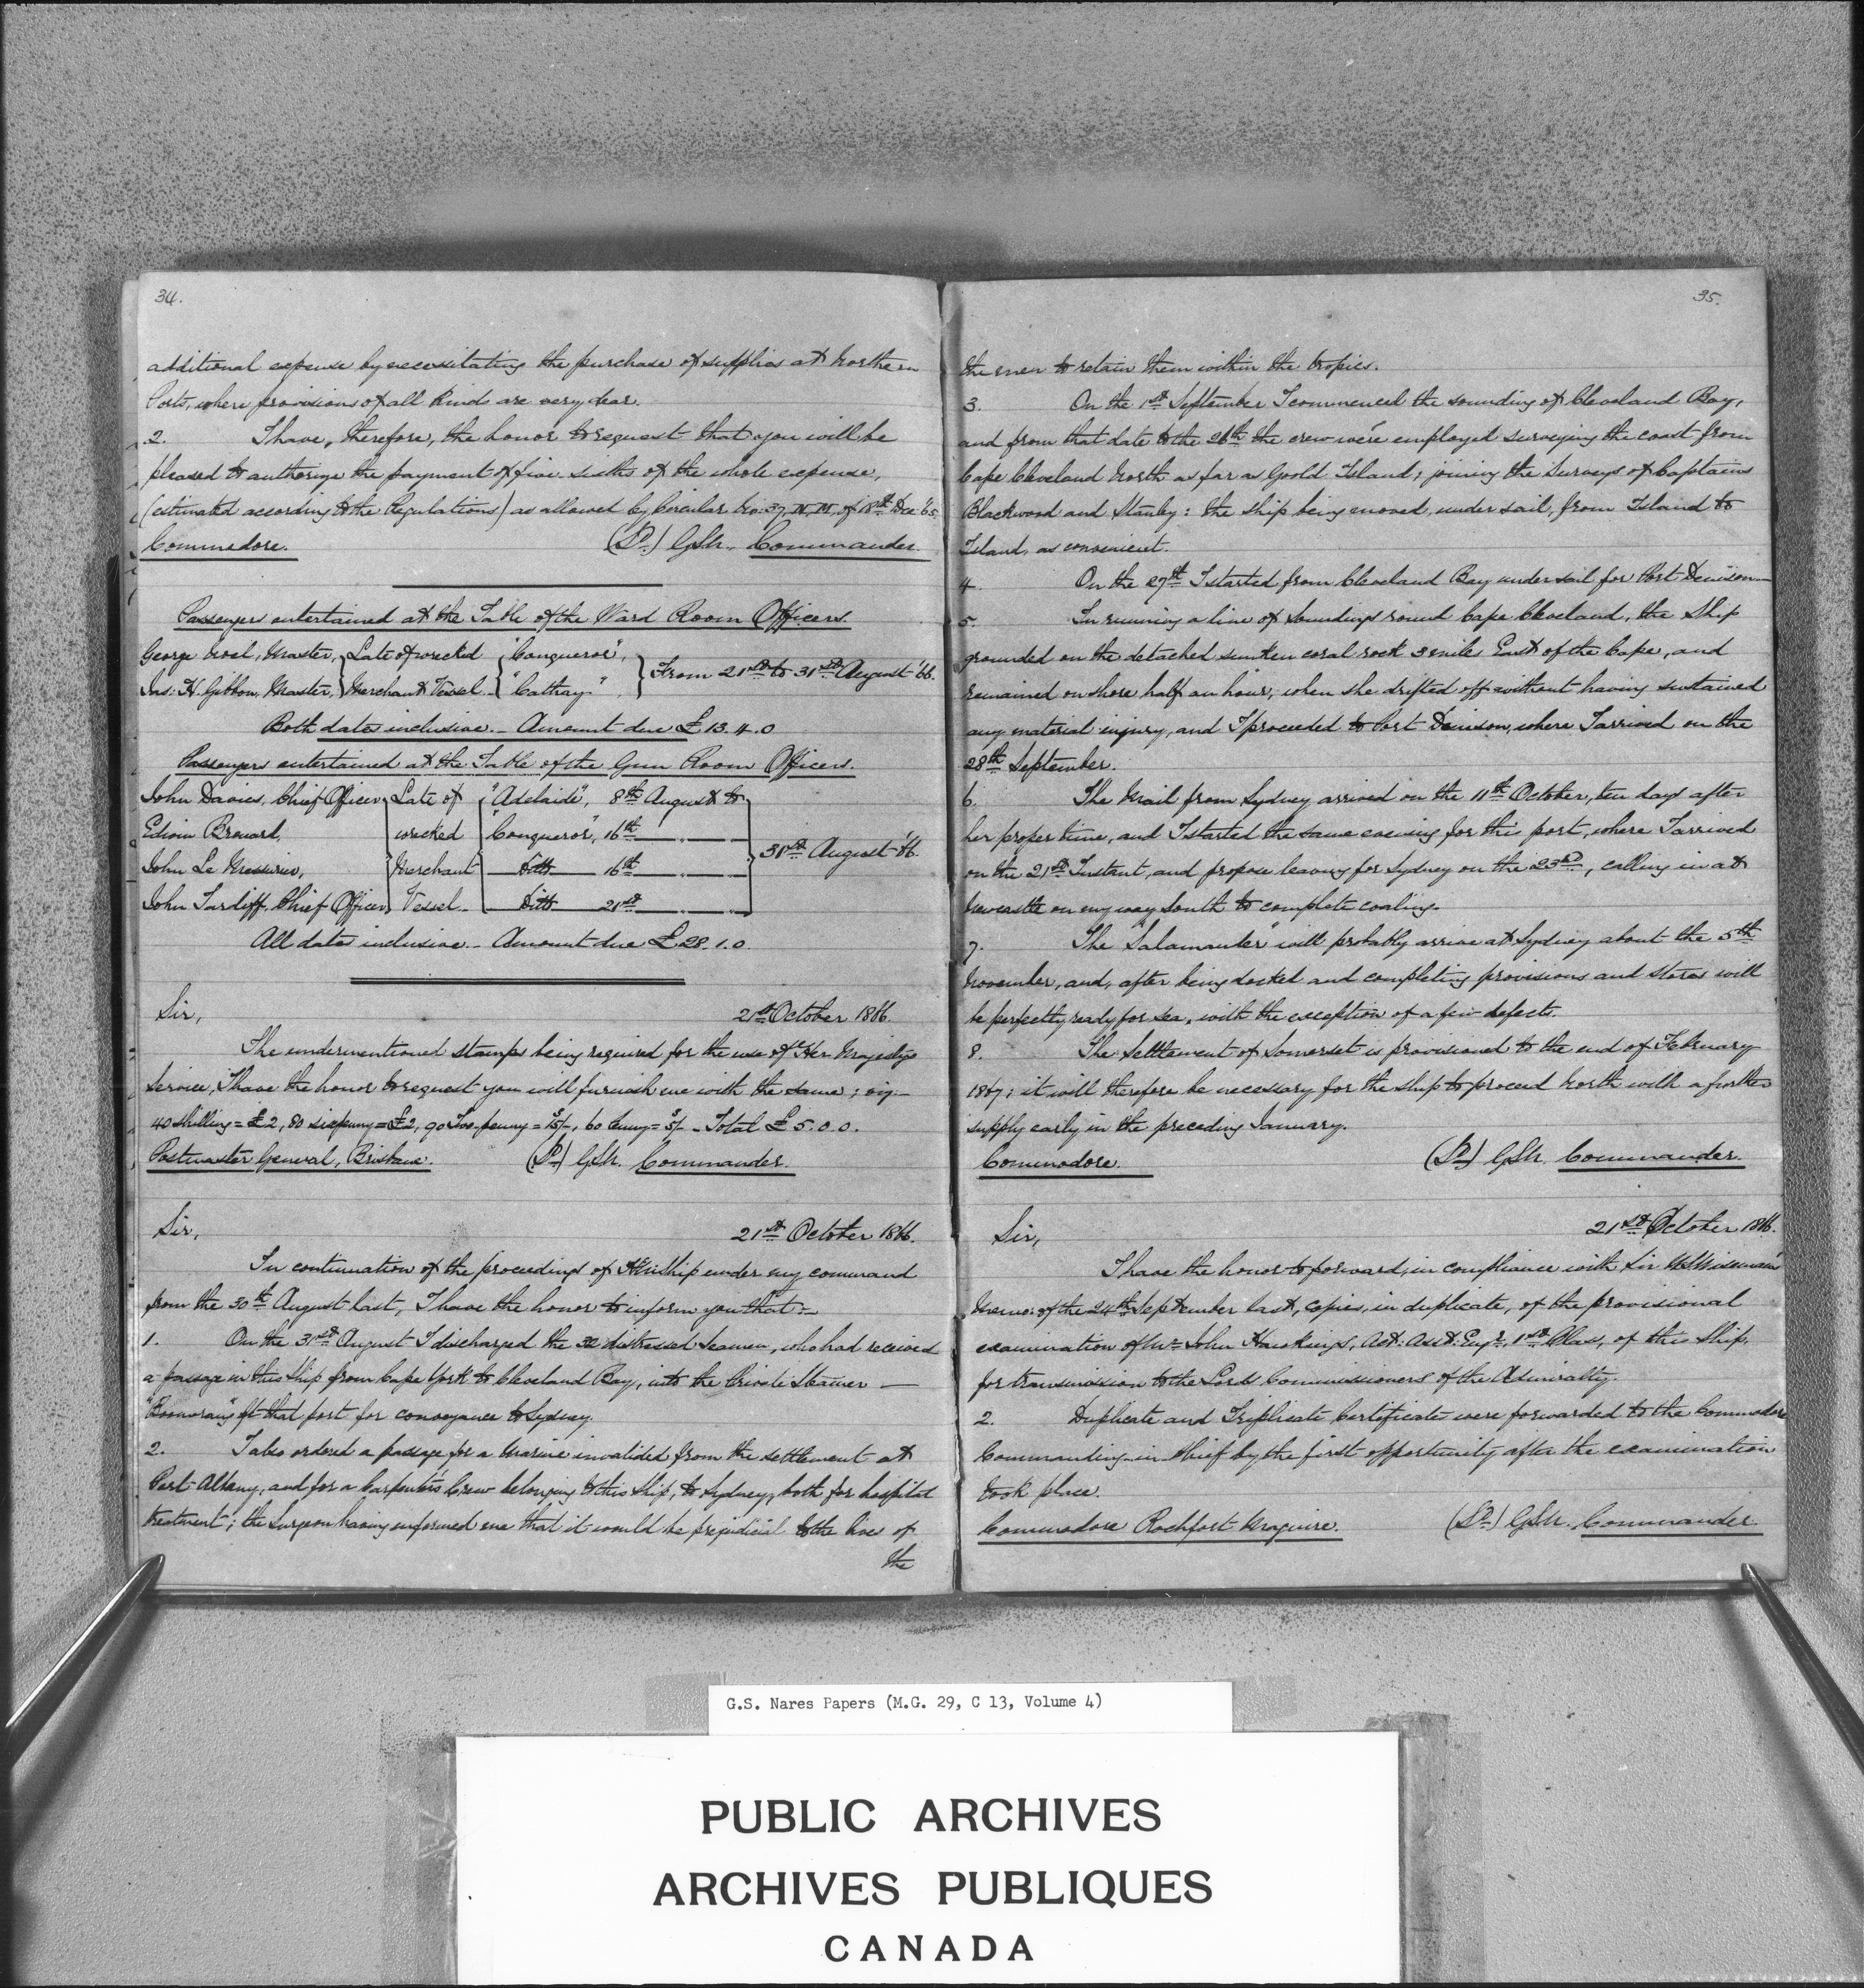 34.
additional expense by necessitating the purchase of supplies at Northern
Ports, where provisions of all kinds are very dear.
2. I have, therefore, the honor to request that you will be
pleased to authorize the payment of five sixths of the whole expense,
(estimated according to the Regulations) as allowed by Circular No. 37, of 18th Dec '65.
Commodore. (Sd.) GSN. Commander.
Passengers entertained at the Table of the Ward Room Officers.
George Master, Late of wrecked "Conqueror",
Jas. H. Gibbon, Master, Merchant Vessel "Cathay", From 21st to 31st August '66.
Both dates inclusive. Amount due £13.4.0
Passengers entertained at the Table of the Gun Room Officers.
John Davies, Chief Officer, Late of "Adelaide", 8th August to
Edwin Brouard, wrecked "Conqueror", 16th
John Le Messurier, Merchant ditto 16th 31st August '66.
John Tardiff, Chief Officer, Vessel ditto 21st
All dates inclusive. Amount due £28.1.0
Sir, 21st October 1866.
The undermentioned stamps being required for the use of Her Majesty's
Service, I have the honor to request you will furnish me with the same; viz-
40 Shilling = £2, 80 sixpenny = £2, 90 Two-penny = 15/-, 60 Penny = 5/- Total £5.0.0.
Postmaster General, Brisbane. (Sd.) GSN. Commander.
Sir, 21st October 1866.
In continuation of the proceedings of HM Ship under my command
from the 30th August last, I have the honor to inform you that:-
1. On the 31st August I discharged the 32 distressed Seamen, who had received
a passage in this Ship from Cape York to Cleveland Bay, into the Private Steamer
"Boomerang" at that port for conveyance to Sydney.
2. I also ordered a passage for a Marine invalided from the settlement at
Port Albany, and for a Carpenter's Crew belonging to this Ship, to Sydney, both for hospital
treatment; the Surgeon having informed me that it would be prejudicial to the lives of
the
35.
the men to retain them within the tropics.
3. On the 1st September I commenced the sounding of Cleveland Bay,
and from that date to the 26th the crew were employed surveying the coast from
Cape Cleveland North as far as Goold Island; joining the Surveys of Captains
Blackwood and Stanley: the ship being moved, under sail, from Island to
Island, as convenient.
4. On the 27th I started from Cleveland Bay under sail for Port Denison
5. In running a line of Soundings round Cape Cleveland, the Ship
grounded on the detached sunken coral rock 3 miles East of the Cape, and
remained on shore half an hour, when she drifted off without having sustained
any material injury, and I proceeded to Port Denison, where I arrived on the
28th September.
6. The Mail from Sydney arrived on the 11th October, ten days after
her proper time, and I started the same evening for this port, where I arrived
on the 21st Instant, and propose leaving for Sydney on the 23rd, calling in at
Newcastle on my way South to complete coaling.
7. The "Salamander" will probably arrive at Sydney about the 5th
November, and, after being docked and completing provisions and stores will
be perfectly ready for sea, with the exception of a few defects.
8. The Settlement of Somerset is provisioned to the end of February
1867; it will therefore be necessary for the ship to proceed North with a further
supply early in the preceding January.
Commodore. (Sd.) GSN. Commander.
Sir, 21st October 1866.
I have the honor to forward, in compliance with Sir W. Wiseman's
Memo: of the 24th September last, copies, in duplicate, of the provisional
examination of Mr. John Hawkings, Act: Asst: Engr. 1st Class, of this Ship,
for transmission to the Lords Commissioners of the Admiralty.
2. Duplicate and Triplicate Certificates were forwarded to the Commodore
Commanding-in-Chief by the first opportunity after the examination
took place.
Commodore Rochfort Maguire. (Sd.) GSN. Commander.
G.S. Nares Papers (M.G. 29, C 13, Volume 4)
PUBLIC ARCHIVES
ARCHIVES PUBLIQUES
CANADA